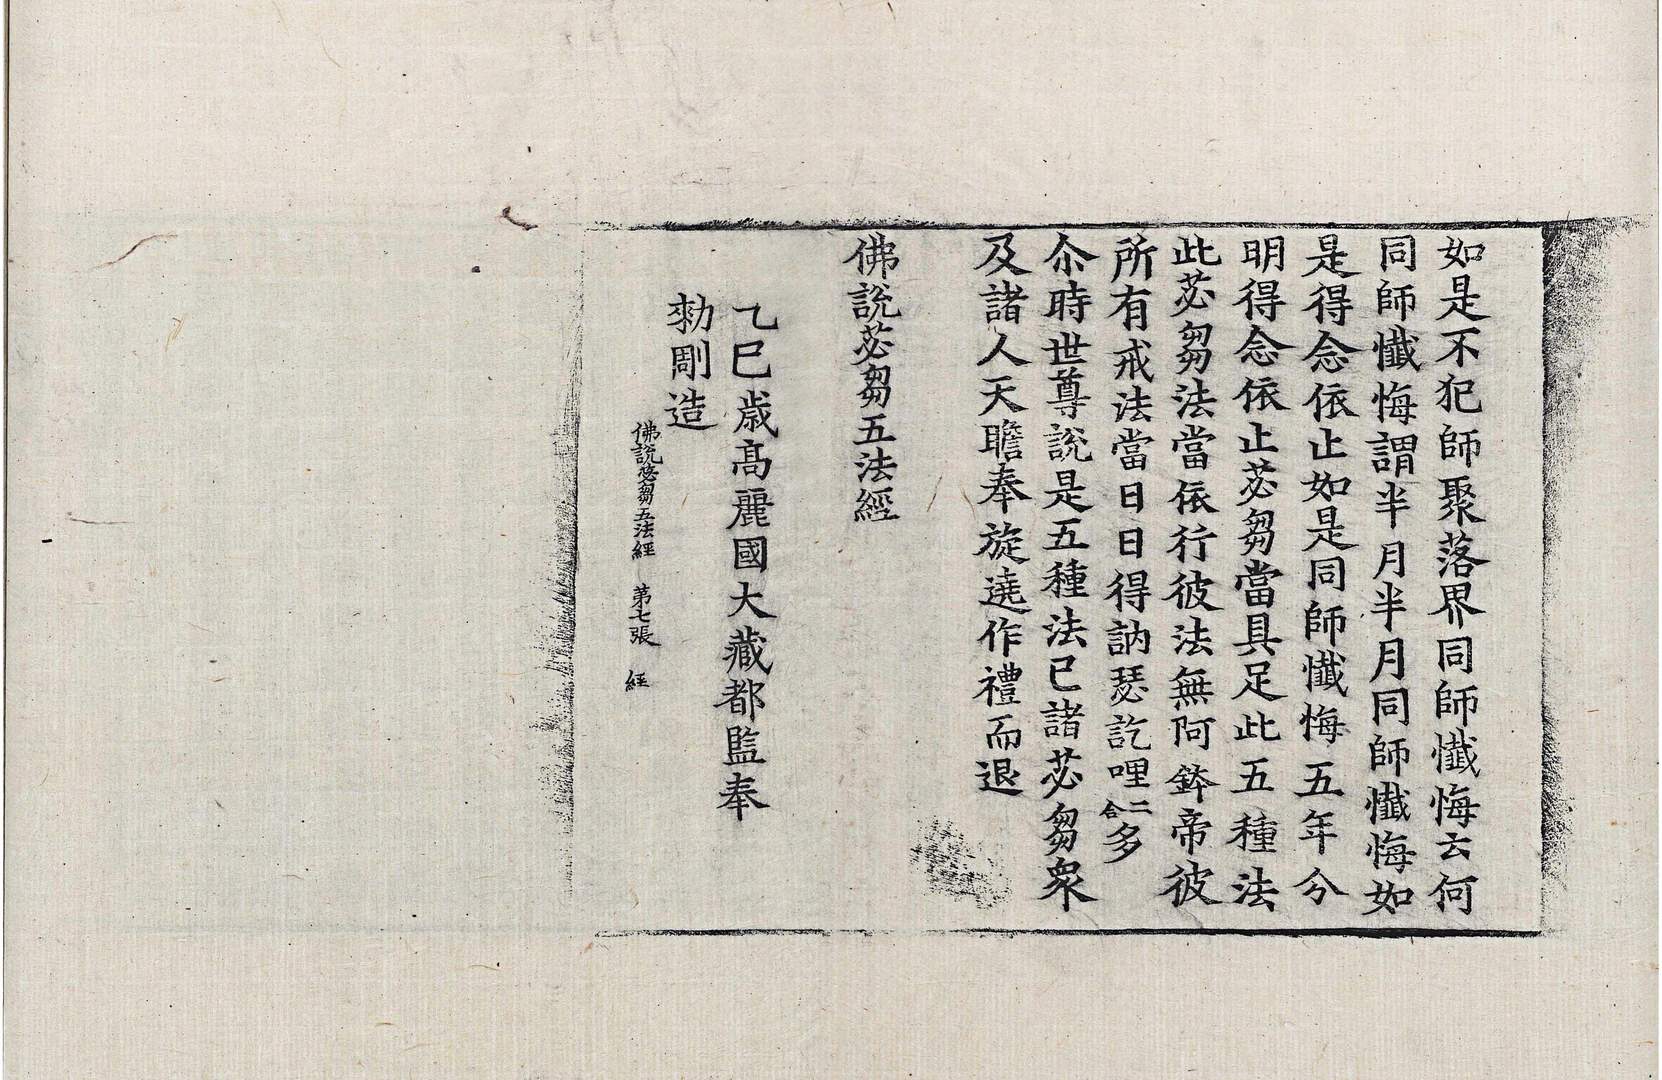 如是不犯師聚落界同師懺悔云何
同師懺悔謂半月半月同師懺悔如
是得念依止如是同師懺悔五年分
明得念依止苾芻當具足此五種法
此苾芻法當依行彼法無阿鉢帝彼
所有戒法當日日得訥瑟訖哩二合多
尒時世尊說是五種法已諸苾芻衆
及諸人天瞻奉旋遶作禮而退
佛說苾芻五法經
乙巳歲高麗國大藏都監奉
勑彫造
佛說苾芻五法經 第七張 經